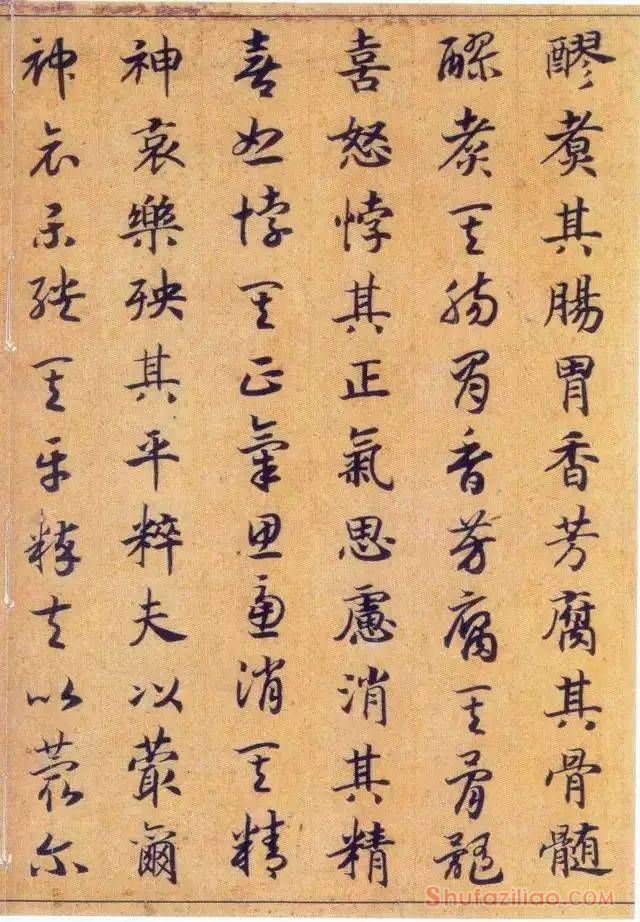 醪煑其腸胃香芳腐其骨髓
醪煑其腸胃香芳腐其骨髓
喜怒悖其正氣思慮消其精
喜怒悖其正氣思慮消其精
神哀樂殃其平粹夫以蕞爾
神哀樂殃其平粹夫以蕞爾
Shufaziliao.com